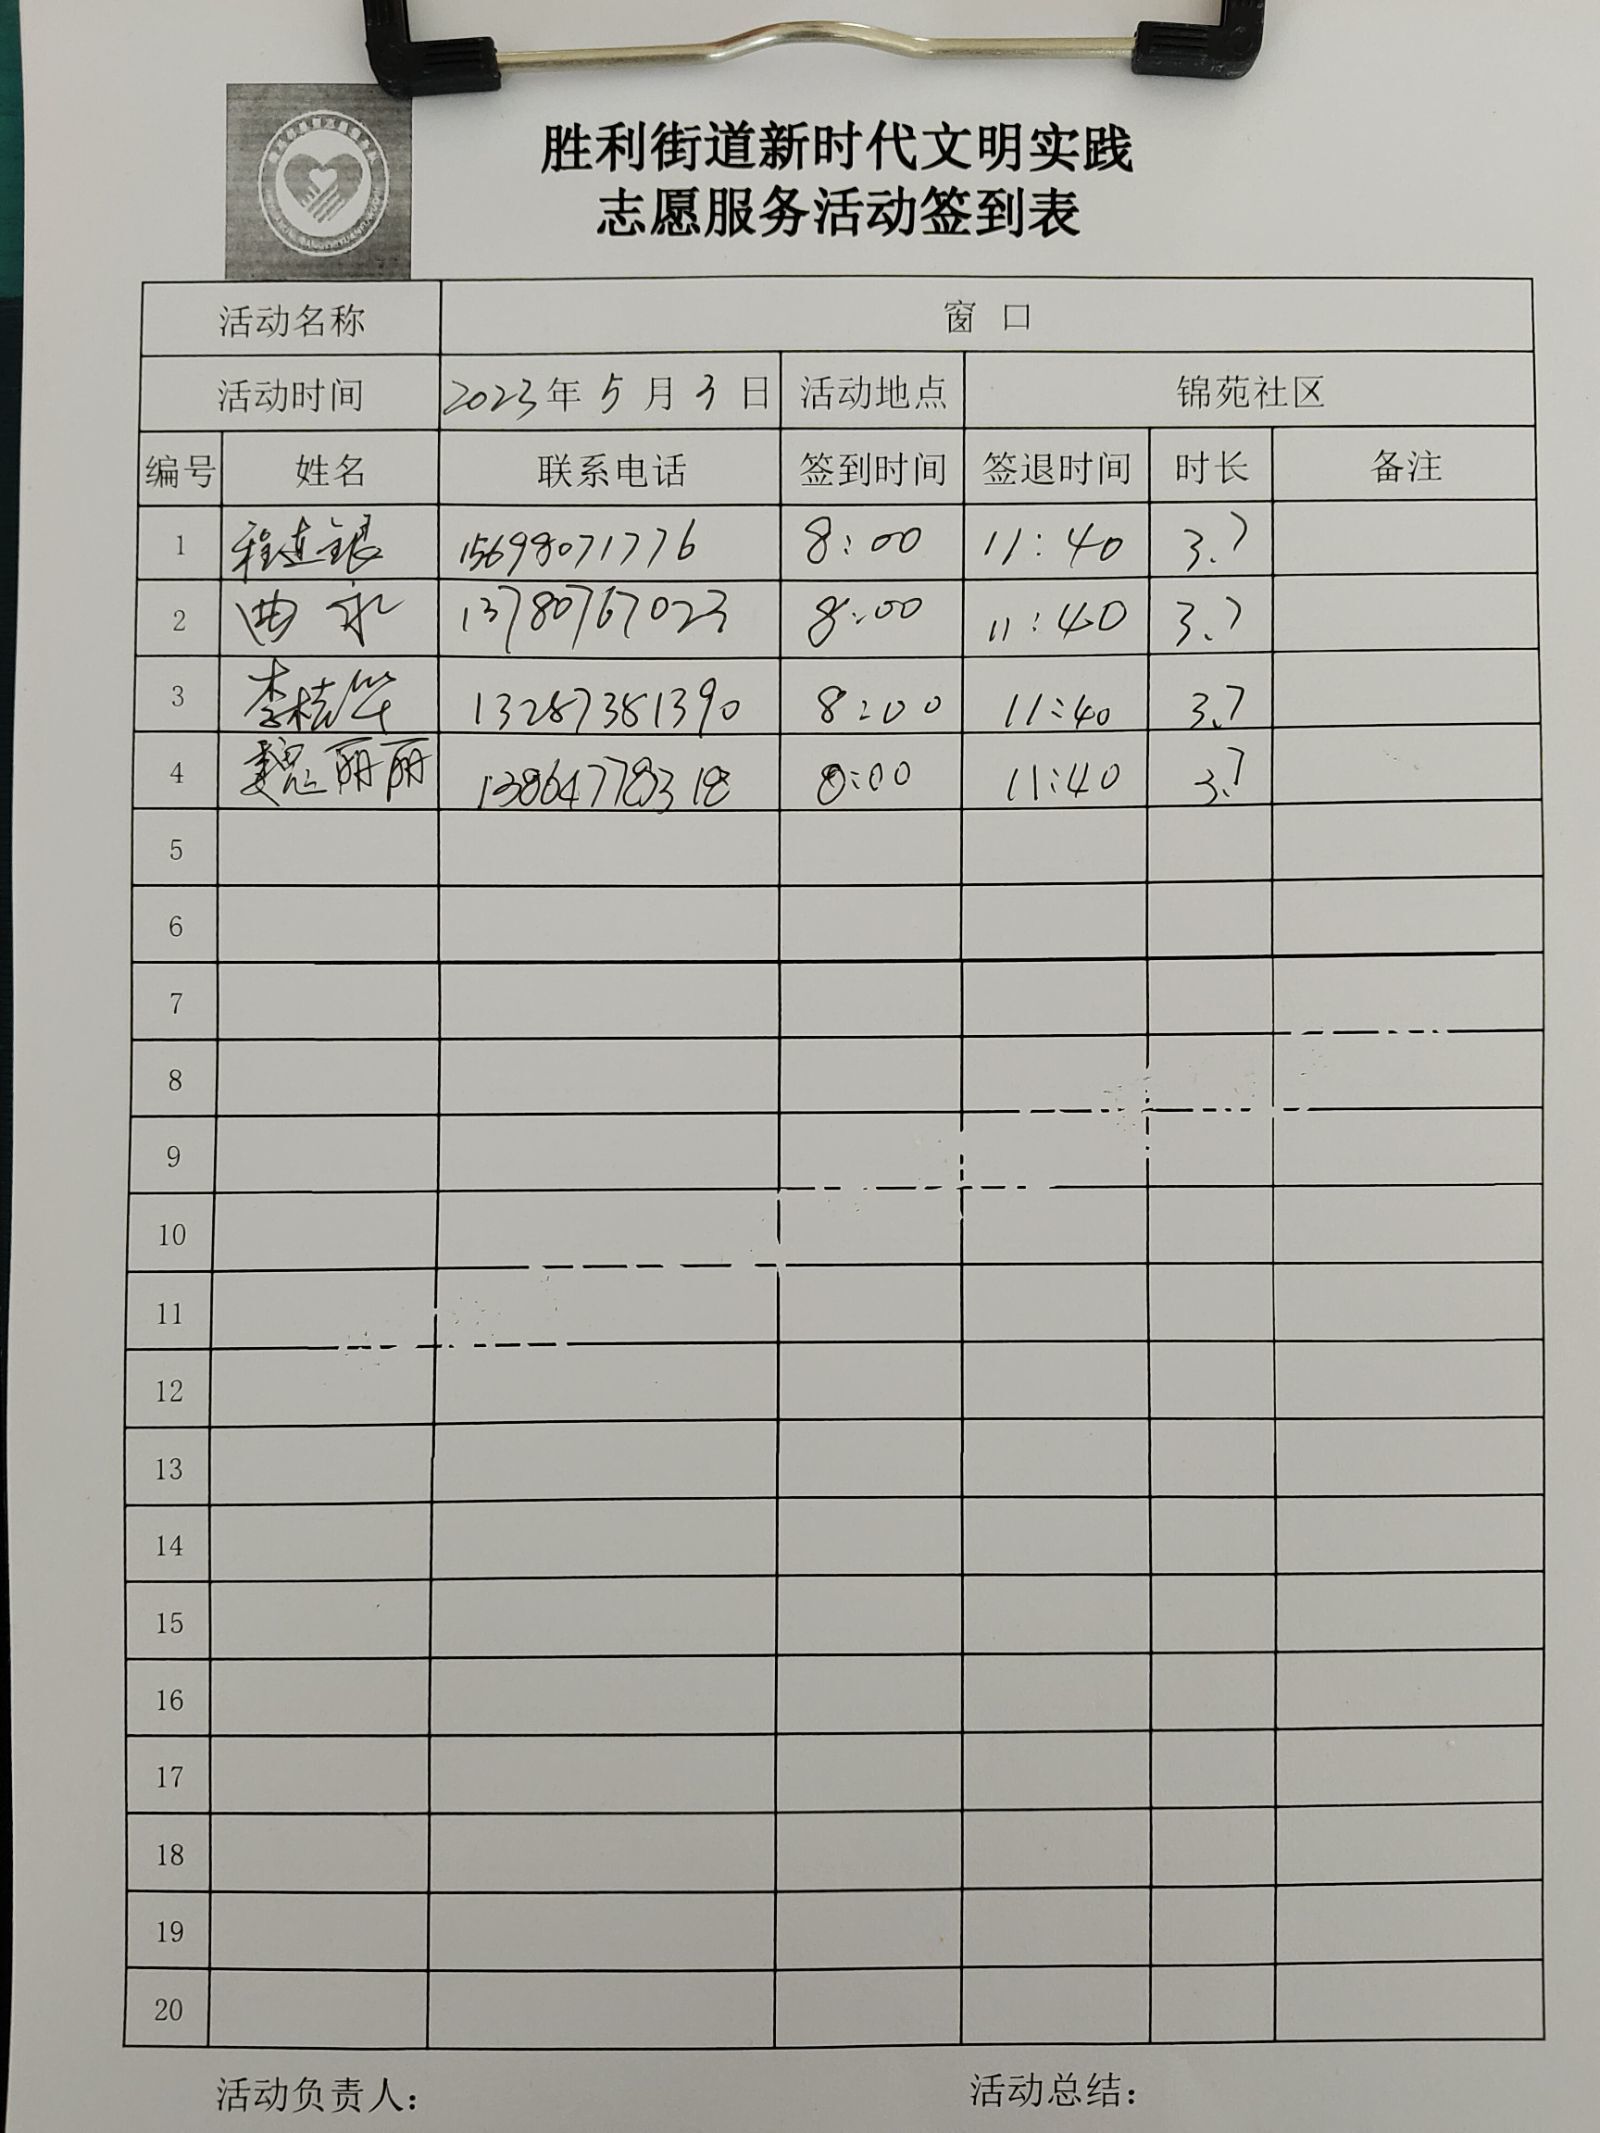 胜利街道新时代文明实践
志愿服务活动签到表
活动名称 窗 口
活动时间 2023年 5 月 3 日 活动地点 锦苑社区
编号 姓名 联系电话 签到时间 签退时间 时长 备注
1 程连银 15698071776 8:00 11:40 3.7
2 曲永 13780767023 8:00 11:40 3.7
3 李桂华 13287381390 8:00 11:40 3.7
4 魏丽丽 13864778318 8:00 11:40 3.7
5
6
7
8
9
10
11
12
13
14
15
16
17
18
19
20
活动负责人: 活动总结: